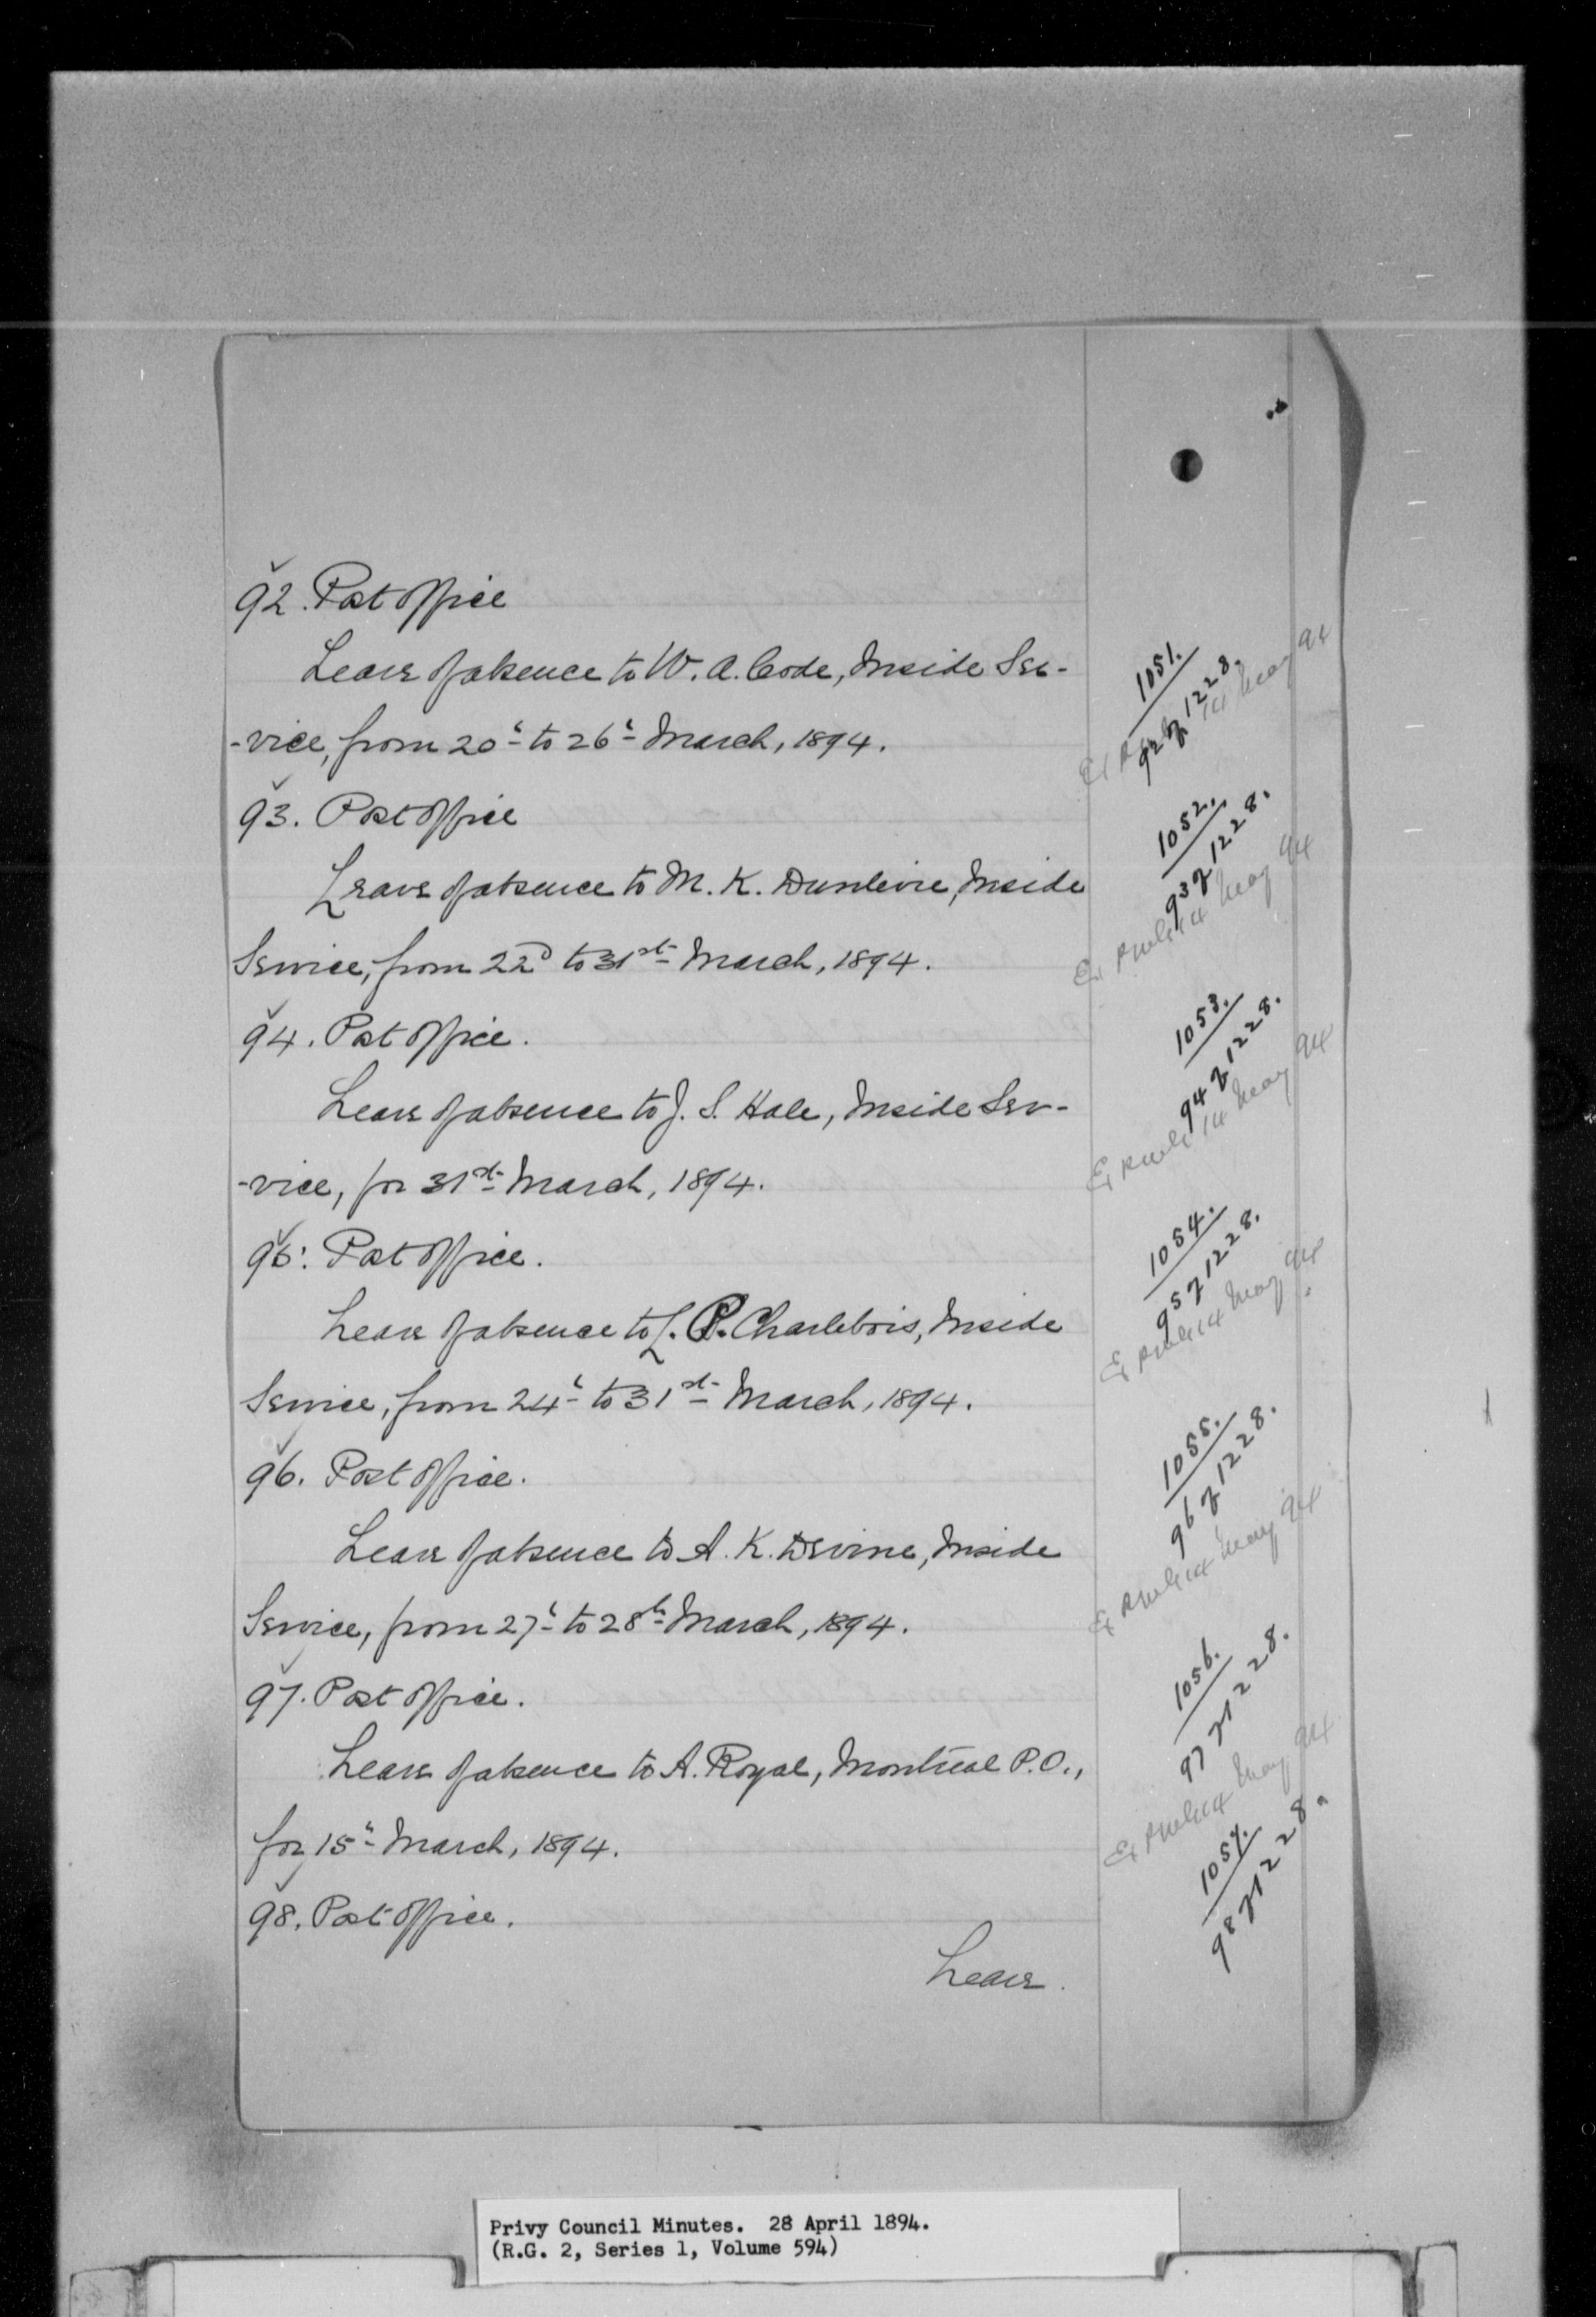 92. Post Office
Leave of absence to W. A. Code, Inside Ser-
-vice, from 20th to 26th March, 1894.
1051.
92 of 1228.
14 May 94
93. Post Office
Leave of absence to M. K. Dunlevie, Inside
Service, from 22d to 31st March, 1894.
1052.
93 of 1228.
14 May 94
94. Post Office.
Leave of absence to J. S. Hale, Inside Ser-
-vice, for 31st March, 1894.
1053.
94 of 1228.
14 May 94
95. Post Office.
Leave of absence to L. P. Charlebois, Inside
Service, from 24th to 31st March, 1894.
1054.
95 of 1228.
14 May 94
96. Post Office.
Leave of absence to A. K. Devine, Inside
Service, from 27th to 28th March, 1894.
1055.
96 of 1228.
14 May 94
97. Post Office.
Leave of absence to A. Royal, Montreal P.O.,
for 15th March, 1894.
1056.
97 of 1228.
14 May 94
98. Post Office.
1057.
98 of 1228.
Leave.
Privy Council Minutes. 28 April 1894.
(R.G. 2, Series 1, Volume 594)